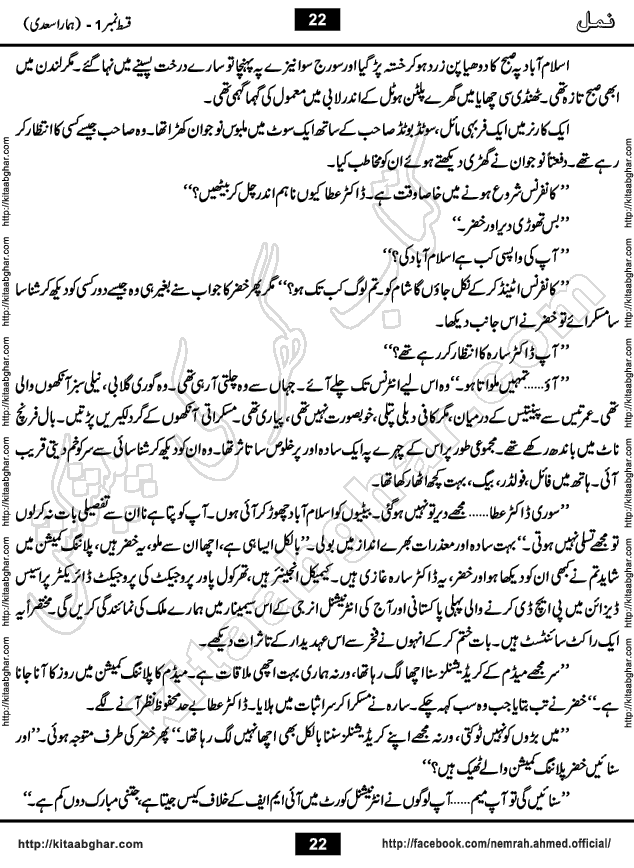 قسط نمبر 1 - (ہمارا سعدی)
22
نمل
اسلام آباد پہ صبح کا دودھیا پن زرد ہو کر خستہ پڑ گیا اور سورج سوا نیزے پہ پہنچا تو سارے درخت پسینے میں نہا گئے۔ مگر لندن میں
ابھی صبح تازہ تھی۔ ٹھنڈی سی چھایا میں گھرے ہلٹن ہوٹل کے اندر لابی میں معمول کی گہما گہمی تھی۔
ایک کارنر میں ایک فربہی مائل، سوٹڈ بوٹڈ صاحب کے ساتھ ایک سوٹ میں ملبوس نوجوان کھڑا تھا۔ وہ صاحب جیسے کسی کا انتظار کر
رہے تھے۔ دفعتاً نوجوان نے گھڑی دیکھتے ہوئے ان کو مخاطب کیا۔
’’کانفرنس شروع ہونے میں خاصا وقت ہے۔ ڈاکٹر عطا کیوں نا ہم اندر چل کر بیٹھیں؟‘‘
’’بس تھوڑی دیر اور خضر۔‘‘
’’آپ کی واپسی کب ہے اسلام آباد کی؟‘‘
’’کانفرنس اٹینڈ کر کے نکل جاؤں گا شام کو۔ تم لوگ کب تک ہو؟‘‘ مگر پھر خضر کا جواب سنے بغیر ہی وہ جیسے دور کسی کو دیکھ کر شناسا
سا مسکرائے تو خضر نے اس جانب دیکھا۔
’’آپ ڈاکٹر سارہ کا انتظار کر رہے تھے؟‘‘
’’آؤ......تمہیں ملواتا ہو۔‘‘ وہ اسے لیے انٹرنس تک چلے آئے۔ جہاں سے وہ چلتی آ رہی تھی۔ وہ گوری گلابی، نیلی سبز آنکھوں والی
تھی۔ عمر تیس سے پینتیس کے درمیان، مگر کافی دبلی پتلی، خوبصورت نہیں تھی، پیاری تھی۔ مسکراتی آنکھوں کے گرد لکیریں پڑتیں۔ بال فرنچ
ناٹ میں باندھ رکھے تھے۔ مجموعی طور پر اس کے چہرے پہ ایک سادہ اور پرخلوص سا تاثر تھا۔ وہ ان کو دیکھ کر شناسائی سے سر کو خم دیتی قریب
آئی۔ ہاتھ میں فائل، فولڈر، بیگ، بہت کچھ اٹھا رکھا تھا۔
’’سوری ڈاکٹر عطا...... مجھے دیر تو نہیں ہو گئی۔ بیٹیوں کو اسلام آباد چھوڑ کر آئی ہوں۔ آپ کو پتا ہے نا ان سے تفصیلی بات نہ کر لوں
تو مجھے تسلی نہیں ہوتی۔‘‘ بہت سادہ اور معذرت بھرے انداز میں بولی۔’’بالکل ایسا ہی ہے، اچھا ان سے ملو، یہ خضر ہیں، پلاننگ کمیشن میں
شاید تم نے کبھی ان کو دیکھا ہو اور خضر، یہ ڈاکٹر سارہ غازی ہیں۔ کیمیکل انجینئر ہیں، تھر کول پاور پروجیکٹ کی پروجیکٹ ڈائریکٹر پراسیس
ڈیزائن میں پی ایچ ڈی کرنے والی پہلی پاکستانی اور آج کی انٹرنیشنل انرجی کے اس سیمینار میں ہمارے ملک کی نمائندگی کریں گی۔ مختصراً یہ
ایک راکٹ سائنٹسٹ ہیں۔ بات ختم کر کے انہوں نے فخر سے اس عہدیدار کے تاثرات دیکھے۔
’’سر مجھے میڈم کے کریڈیشنلز سننا اچھا لگ رہا تھا، ورنہ ہماری بہت اچھی ملاقات ہے۔ میڈم کا پلاننگ کمیشن میں روز کا آنا جانا
ہے۔‘‘ خضر نے تب بتایا جب وہ سب کہہ چکے۔ سارہ نے مسکرا کر سر اثبات میں ہلایا۔ ڈاکٹر عطا بے حد محفوظ نظر آنے لگے۔
’’میں بڑوں کو نہیں ٹوکتی، ورنہ مجھے اپنے کریڈیشنلز سننا بالکل بھی اچھا نہیں لگ رہا تھا۔‘‘ پھر خضر کی طرف متوجہ ہوئی۔ ’’اور
سنائیں خضر پلاننگ کمیشن والے ٹھیک ہیں؟‘‘
’’سنائیں گی تو آپ میم......آپ لوگوں نے انٹرنیشنل کورٹ میں آئی ایم ایف کے خلاف کیس جیتا ہے، جتنی مبارک دوں کم ہے۔‘‘
http://kitaabghar.com
http://kitaabghar.com
http://kitaabghar.com
http://kitaabghar.com
http://kitaabghar.com
http://kitaabghar.com
http://kitaabghar.com
http://kitaabghar.com
http://kitaabghar.com
http://kitaabghar.com
http://kitaabghar.com
http://kitaabghar.com
کتاب گھر کی پیشکش
kitaabghar.com
http://kitaabghar.com
22
http://facebook.com/nemrah.ahmed.official/